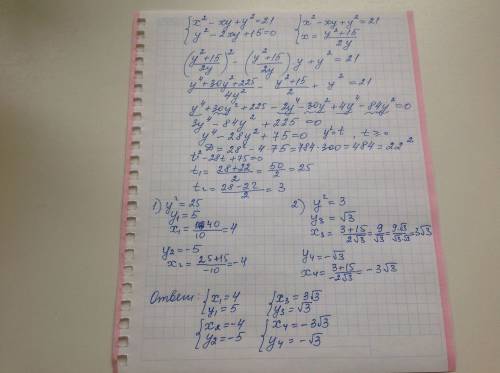 {x² - xy + y² = 21   {x² - xy + y² = 21
{y² - 2xy + 15 = 0   {x = (y² + 15)/(2y)
((y² + 15)/(2y))² - ((y² + 15)/(2y)) y + y² = 21
(y⁴ + 30y² + 225)/(4y²) - (y² + 15)/2 + y² = 21
y⁴ + 30y² + 225 - 2y⁴ - 30y² + 4y⁴ - 84y² = 0
3y⁴ - 84y² + 225 = 0
y⁴ - 28y² + 75 = 0   y² = t, t ≥ 0
D = 28² - 4·75 = 784 - 300 = 484 = 22²
t² - 28t + 75 = 0
t₁ = (28 + 22)/2 = 50/2 = 25
t₂ = (28 - 22)/2 = 3
1) y² = 25
y₁ = 5
x₁ = 40/10 = 4
y₂ = -5
x₂ = (25 + 15)/(-10) = -4
2) y² = 3
y₃ = √3
x₃ = (3 + 15)/(2√3) = 9/√3 = 9√3/(√3·√3) = 3√3
y₄ = -√3
x₄ = (3 + 15)/(-2√3) = -3√3
Ответ: {x₁ = 4   {x₃ = 3√3
{y₁ = 5   {y₃ = √3
{x₂ = -4   {x₄ = -3√3
{y₂ = -5   {y₄ = -√3